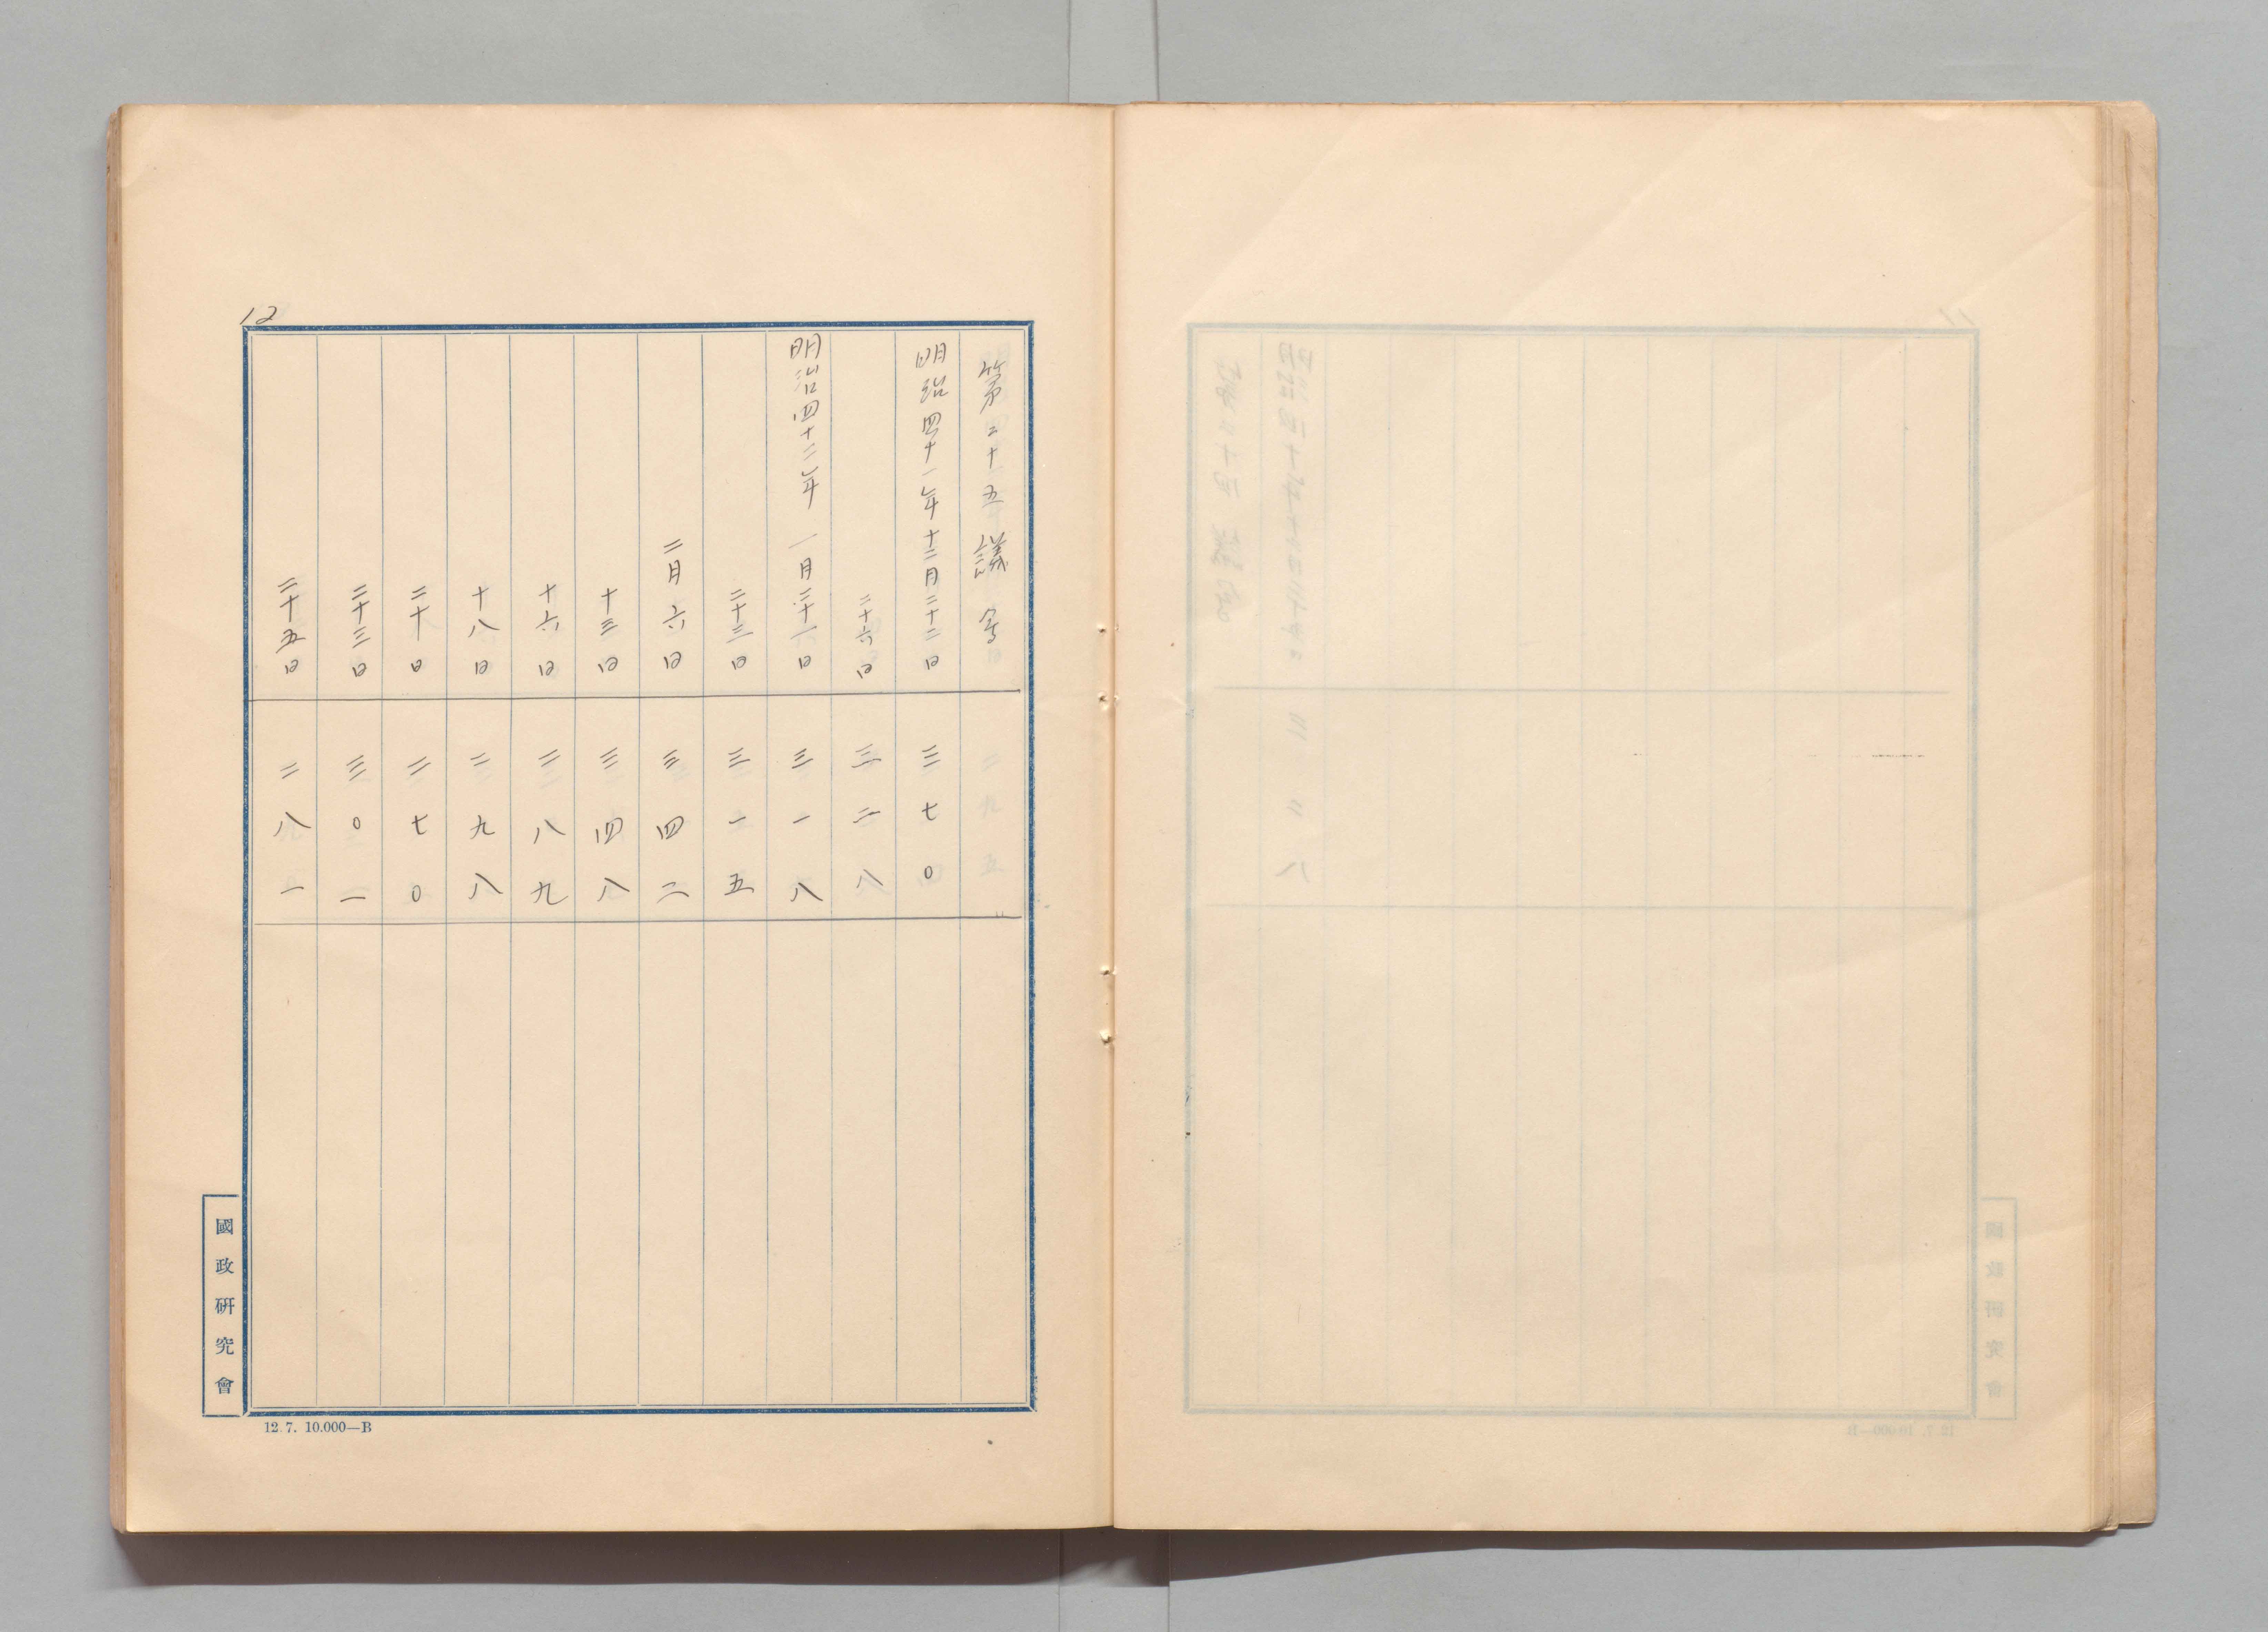 12
第二十五議会
明治四十一年十二月二十二日 三七〇
二十六日 三二八
明治四十二年 一月二十一日 三一八
二十三日 三一五
二月六日 三四二
十三日 三四八
十六日 二八九
十八日 二九八
二十日 二七〇
二十三日 三〇一
二十五日 二八一
國政研究會
12.7. 10.000—B